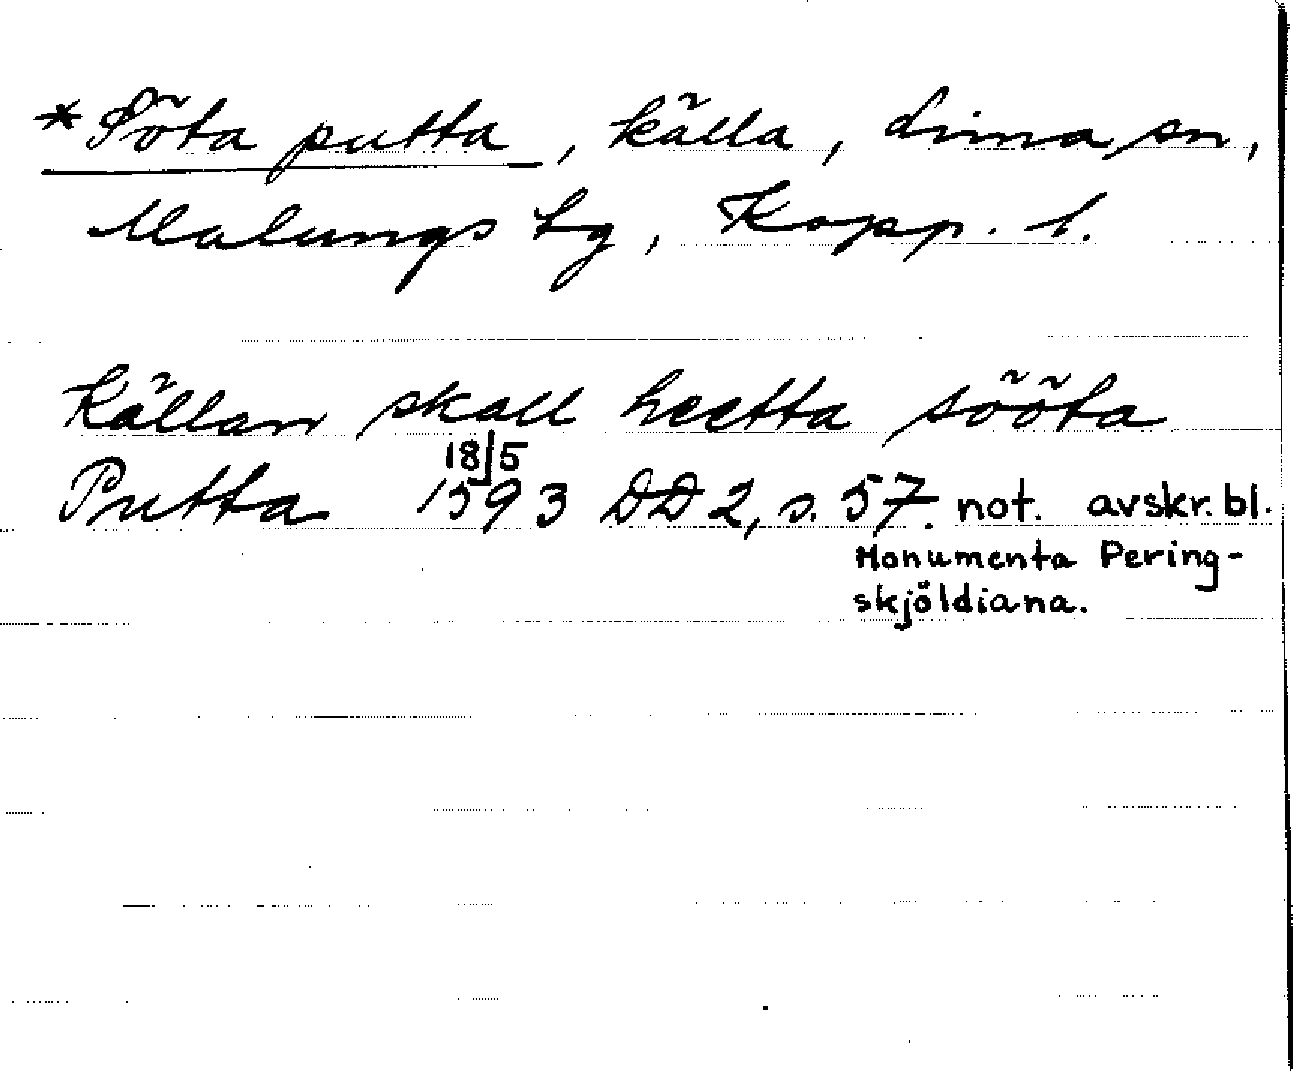 *Söta putta, källa, Lima sn,
Malungs tg, Kopp. l.
Källan skall heetta sööta
18/5
Putta 1593 DD 2, s. 57. not. avskr. bl.
Monumenta Pering-
skjöldiana.